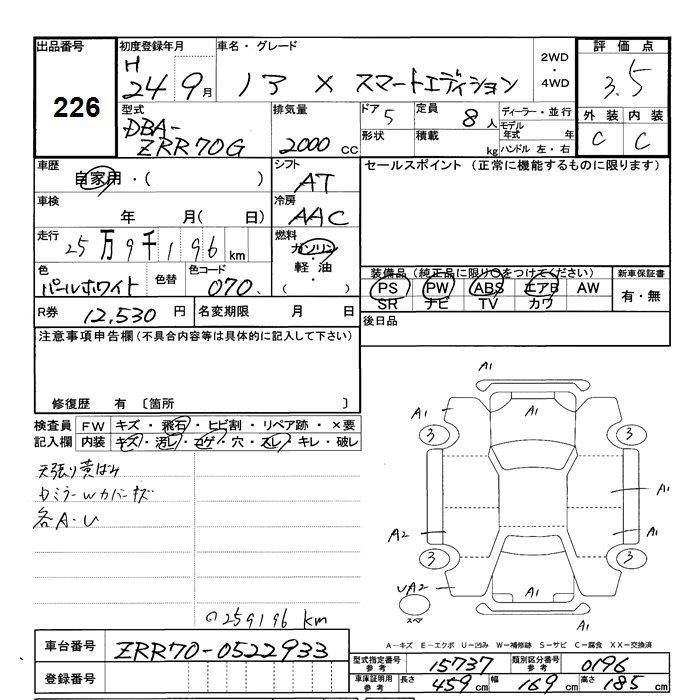 出品番号
226
初度登録年月
H
24 9月
車名・グレード
ノア X スマートエディション
2WD
・
4WD
評価点
3.5
外装 内装
C C
型式
DBA-
ZRR70G
排気量
2000 CC
ドア 5
定員 8人
形状
積載 kg
ディーラー・並行
モデル年式 年
ハンドル 左・右
車歴
自家用・( )
シフト
AT
セールスポイント (正常に機能するものに限ります)
車検
年 月( 日)
冷房
AAC
走行
25万9千196km
燃料
ガソリン
・
軽油
・
( )
色
パールホワイト
色替
色コード
070
装備品(純正品に限り○をつけてください)
PS PW ABS エアB AW
SR ナビ TV カワ
新車保証書
有・無
R券 12,530円
名変期限 月 日
後日品
注意事項申告欄(不具合内容等は具体的に記入して下さい)
修復歴 有 〔箇所 〕
検査員
記入欄
FW キズ・飛石・ヒビ割・リペア跡・×要
内装 キズ・汚レ・コゲ・穴・スレ・キレ・破レ
天張り黄ばみ
カミラーWカバーキズ
各A・U
259196 km
A1
A1
A1
3
3
A1
A1
A2
3
3
UA2
A1
A1
スペア
A-キズ E-エクボ U-凹み W-補修跡 S-サビ C-腐食 XX-交換済
車台番号
ZRR70-0522933
登録番号
型式指定番号
参考
15737
類別区分番号
参考
0196
車庫証明用
参考
長さ 459cm 幅 169cm 高さ 185cm